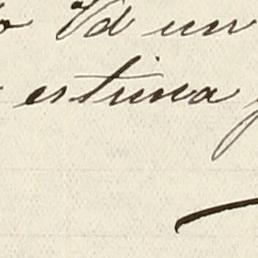 Vd un
estima